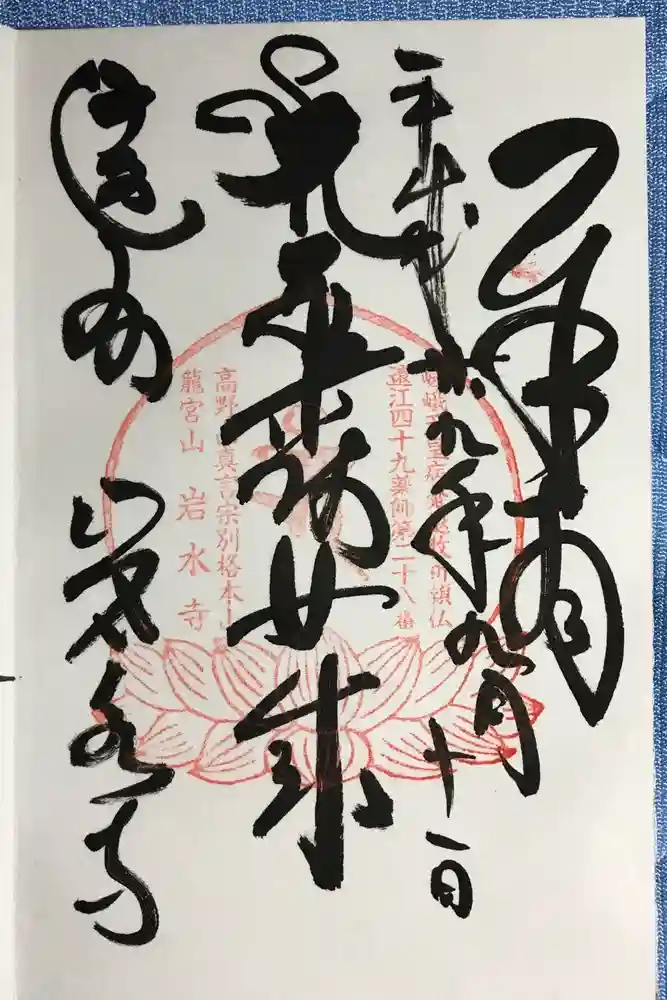 奉拝
平成廿九年九月十一日
薬師如来
遠州
岩水寺
遠江四十九薬師第二十八番
高野山真言宗別格本山
龍宮山 岩水寺